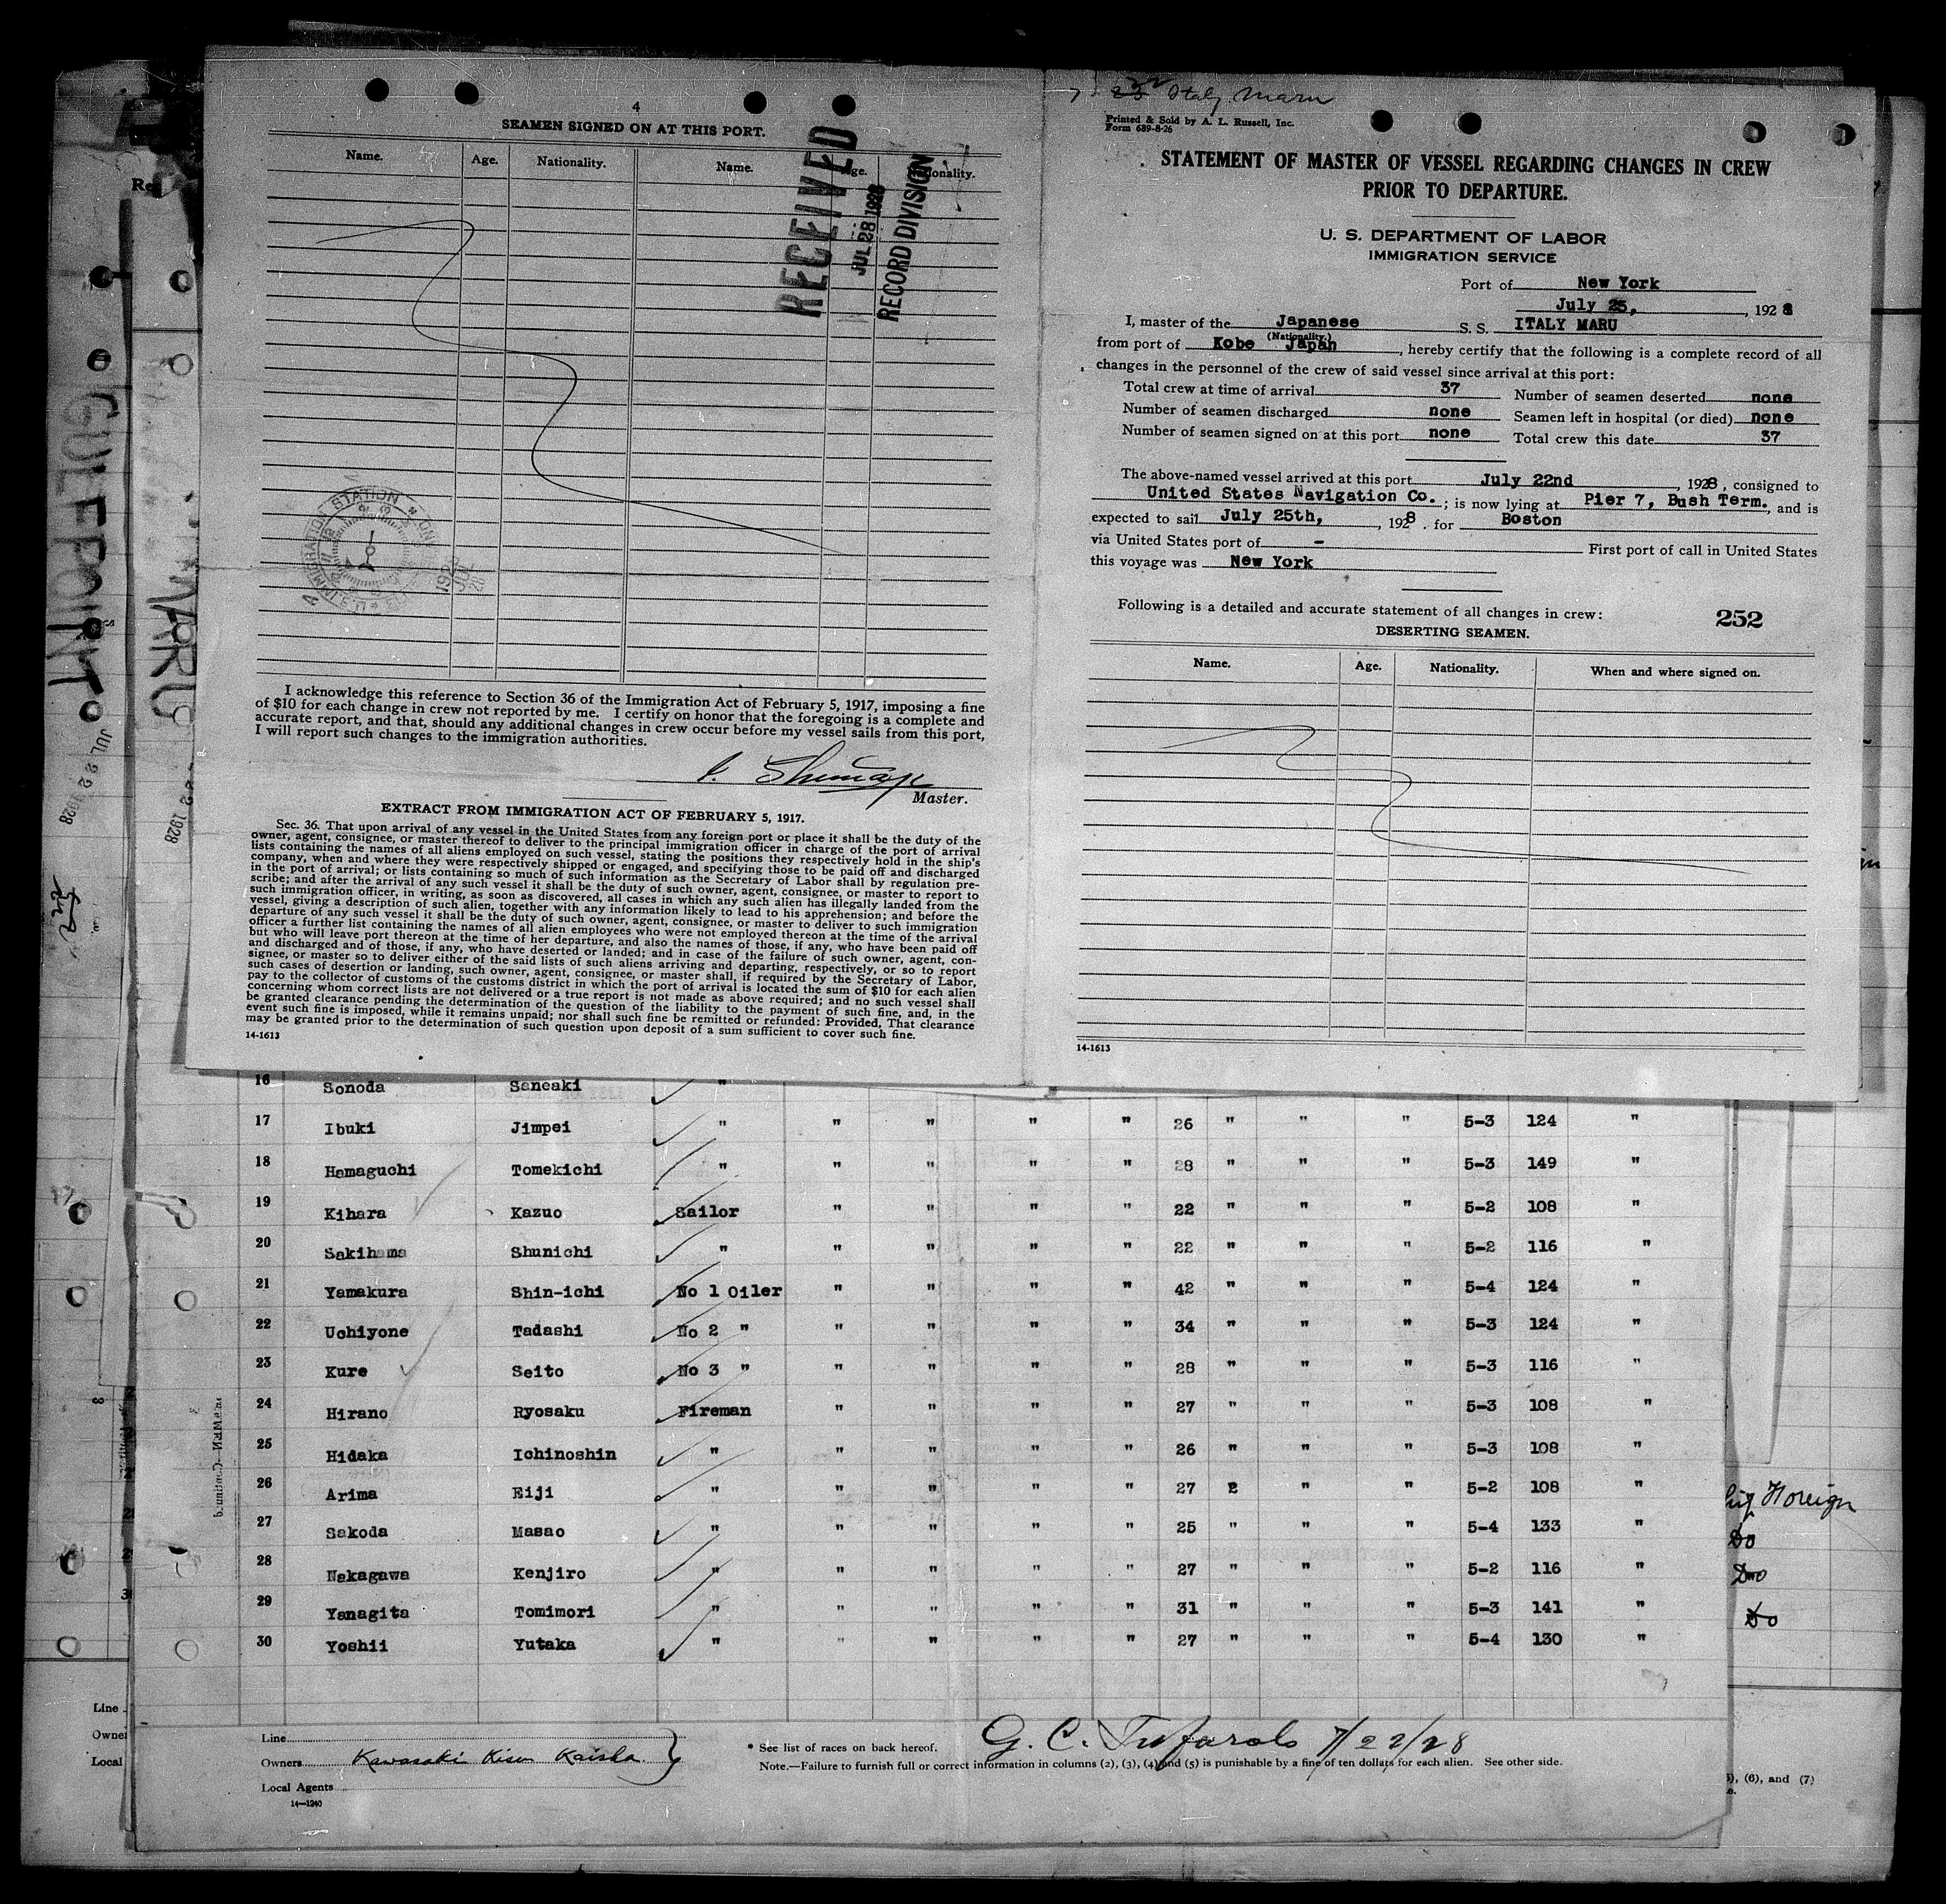 4
SEAMEN SIGNED ON AT THIS PORT.
Name. Age. Nationality. Name. Age. Nationality.
RECEIVED
JUL 28 1928
RECORD DIVISION
I acknowledge this reference to Section 36 of the Immigration Act of February 5, 1917, imposing a fine
of $10 for each change in crew not reported by me. I certify on honor that the foregoing is a complete and
accurate report, and that, should any additional changes in crew occur before my vessel sails from this port,
I will report such changes to the immigration authorities.
Master.
EXTRACT FROM IMMIGRATION ACT OF FEBRUARY 5, 1917.
Sec. 36. That upon arrival of any vessel in the United States from any foreign port or place it shall be the duty of the
owner, agent, consignee, or master thereof to deliver to the principal immigration officer in charge of the port of arrival
lists containing the names of all aliens employed on such vessel, stating the positions they respectively hold in the ship's
company, when and where they were respectively shipped or engaged, and specifying those to be paid off and discharged
in the port of arrival; or lists containing so much of such information as the Secretary of Labor shall by regulation pre-
scribe; and after the arrival of any such vessel it shall be the duty of such owner, agent, consignee, or master to report to
such immigration officer, in writing, as soon as discovered, all cases in which any such alien has illegally landed from the
vessel, giving a description of such alien, together with any information likely to lead to his apprehension; and before the
departure of any such vessel it shall be the duty of such owner, agent, consignee, or master to deliver to such immigration
officer a further list containing the names of all alien employees who were not employed thereon at the time of the arrival
but who will leave port thereon at the time of her departure, and also the names of those, if any, who have been paid off
and discharged and of those, if any, who have deserted or landed; and in case of the failure of such owner, agent, con-
signee, or master so to deliver either of the said lists of such aliens arriving and departing, respectively, or so to report
such cases of desertion or landing, such owner, agent, consignee, or master shall, if required by the Secretary of Labor,
pay to the collector of customs of the customs district in which the port of arrival is located the sum of $10 for each alien
concerning whom correct lists are not delivered or a true report is not made as above required; and no such vessel shall
be granted clearance pending the determination of the question of the liability to the payment of such fine, and, in the
event such fine is imposed, while it remains unpaid; nor shall such fine be remitted or refunded: Provided, That clearance
may be granted prior to the determination of such question upon deposit of a sum sufficient to cover such fine.
14-1613
Italy Maru
Printed & Sold by A. L. Russell, Inc.
Form 689-8-26
STATEMENT OF MASTER OF VESSEL REGARDING CHANGES IN CREW
PRIOR TO DEPARTURE.
U. S. DEPARTMENT OF LABOR
IMMIGRATION SERVICE
Port of New York
July 25, , 1928
I, master of the Japanese S. S. ITALY MARU
(Nationality.)
from port of Kobe Japan , hereby certify that the following is a complete record of all
changes in the personnel of the crew of said vessel since arrival at this port:
Total crew at time of arrival 37 Number of seamen deserted none
Number of seamen discharged none Seamen left in hospital (or died) none
Number of seamen signed on at this port none Total crew this date 37
The above-named vessel arrived at this port July 22nd , 1928 , consigned to
United States Navigation Co. ; is now lying at Pier 7, Bush Term. , and is
expected to sail July 25th, , 1928 . for Boston
via United States port of - First port of call in United States
this voyage was New York
Following is a detailed and accurate statement of all changes in crew: 252
DESERTING SEAMEN.
Name. Age. Nationality. When and where signed on.
14-1613
16 Sonoda Saneaki "
17 Ibuki Jimpei " " " " " 26 " " " 5-3 124 "
18 Hamaguchi Tomekichi " " " " " 28 " " " 5-3 149 "
19 Kihara Kazuo Sailor " " " " 22 " " " 5-2 108 "
20 Sakihama Shunichi " " " " " 22 " " " 5-2 116 "
21 Yamakura Shin-ichi No 1 Oiler " " " " 42 " " " 5-4 124 "
22 Uchiyone Tadashi No 2 " " " " " 34 " " " 5-3 124 "
23 Kure Seito No 3 " " " " " 28 " " " 5-3 116 "
24 Hirano Ryosaku Fireman " " " " 27 " " " 5-3 108 "
25 Hidaka Ichinoshin " " " " " 26 " " " 5-3 108 "
26 Arima Eiji " " " " " 27 2 " " 5-2 108 "
27 Sakoda Masao " " " " " 25 " " " 5-4 133 "
28 Nakagawa Kenjiro " " " " " 27 " " " 5-2 116 "
29 Yanagita Tomimori " " " " " 31 " " " 5-3 141 "
30 Yoshii Yutaka " " " " " 27 " " " 5-4 130 "
Foreign
Do
Do
Do
Line
Owners Kawasaki Kisen Kaisha
Local Agents
14-1240
* See list of races on back hereof.
G. C. Tufarolo 7/22/28
Note.—Failure to furnish full or correct information in columns (2), (3), (4) and (5) is punishable by a fine of ten dollars for each alien. See other side.
(6), and (7)
GULFPOINT
JUL 22 1928
MARU
1928
Line
Local